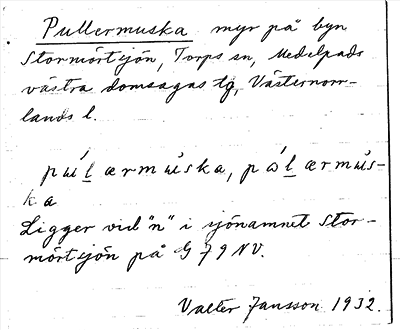 Pullermuska myr på byn
Stormörtsjön, Torps sn, Medelpads
västra domsagas tg, Västernorr-
lands l.
púlærmùska, pólærmùs-
ka
Ligger vid "n" i sjönamnet Stor-
mörtsjön på G 79 NV.
Valter Jansson 1932.